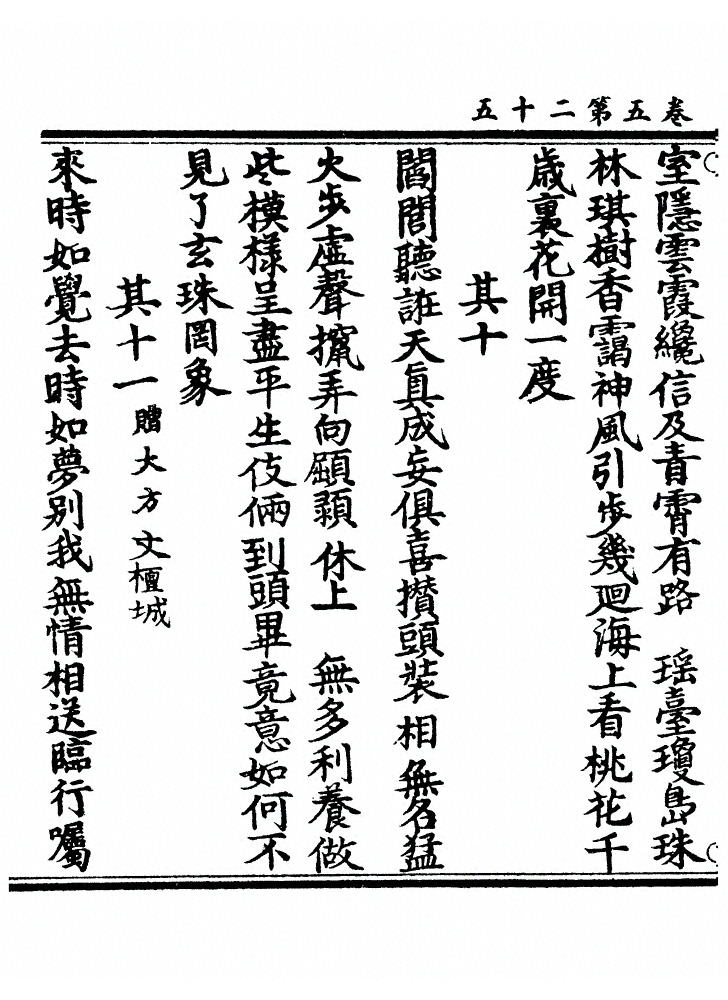 卷五第二十五
室隱雲霞纔信及青霄有路　瑶臺瓊島珠
林琪樹香靄神風引步幾廻海上看桃花千
歲裏花開一度
其十
閻閭聽誑天真成妄俱喜攅頭裝相無名猛
火步虛聲攛弄向顧顙休上　無多利養做
些模樣呈盡平生伎倆到頭畢竟意如何不
見了玄珠罔象
其十一贈大方文檀城
來時如覺去時如夢别我無情相送臨行囑